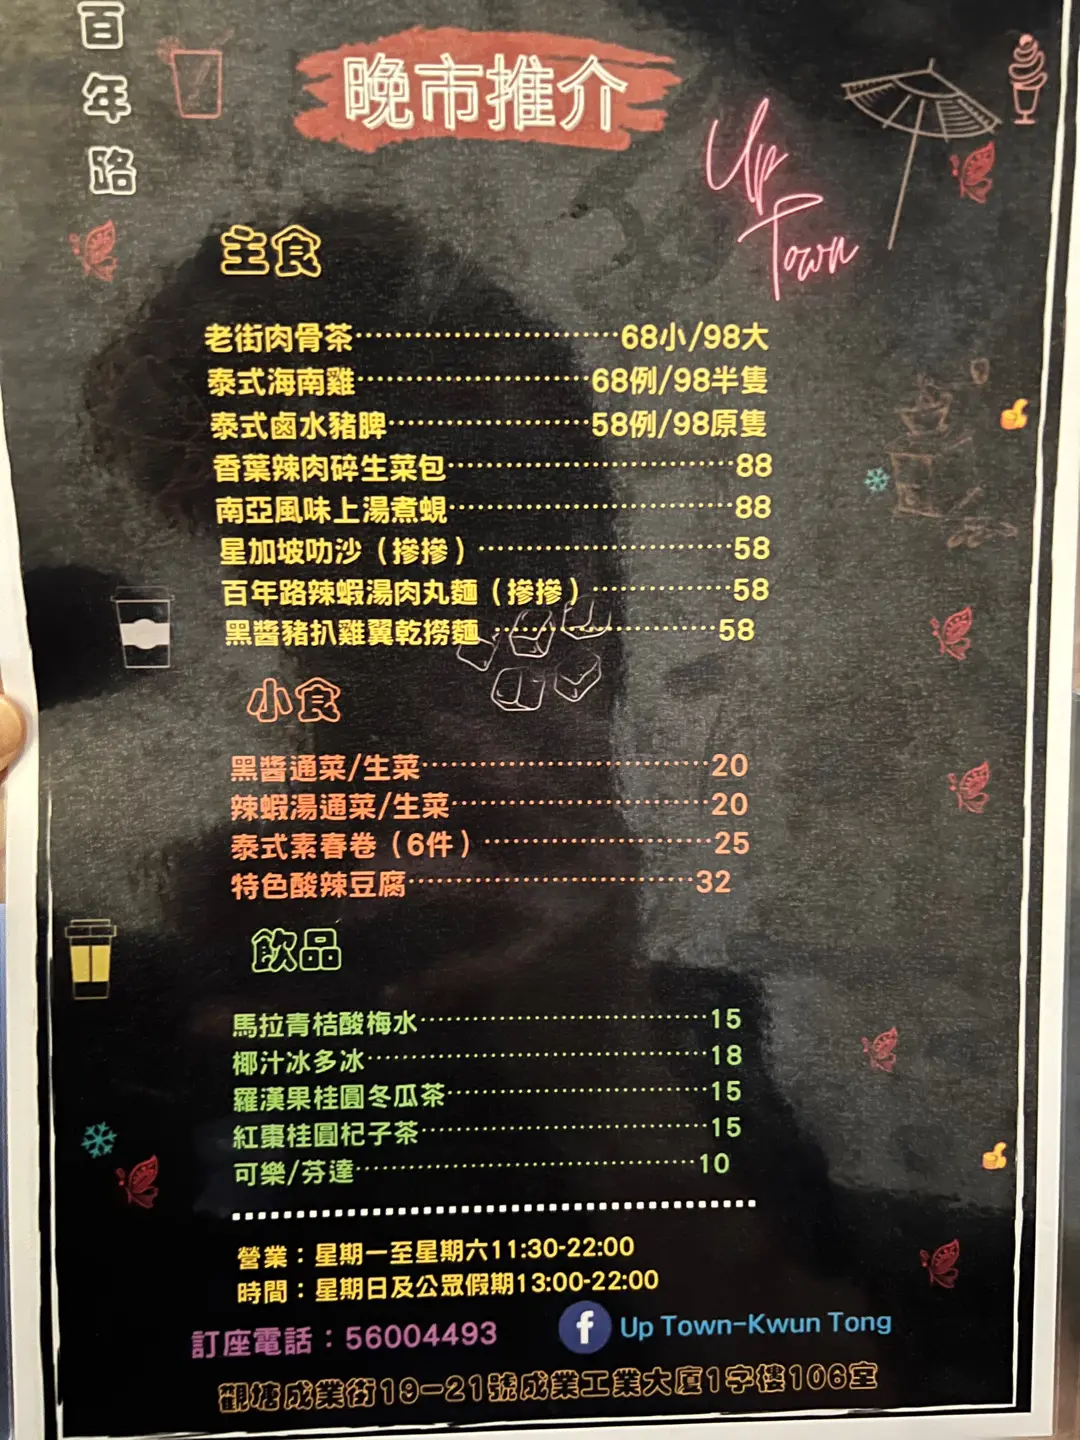 百年路
晚市推介
Up
Town
主食
老街肉骨茶························68小/98大
泰式海南雞························68例/98半隻
泰式鹵水豬脾····················58例/98原隻
香葉辣肉碎生菜包····························88
南亞風味上湯煮蜆····························88
星加坡叻沙（摻摻）·························58
百年路辣蝦湯肉丸麵（摻摻）··············58
黑醬豬扒雞翼乾撈麵······················58
小食
黑醬通菜/生菜····························20
辣蝦湯通菜/生菜·························20
泰式素春卷（6件）······················25
特色酸辣豆腐····························32
飲品
馬拉青桔酸梅水······························15
椰汁冰多冰···································18
羅漢果桂圓冬瓜茶···························15
紅棗桂圓杞子茶······························15
可樂/芬達···································10
營業：星期一至星期六11:30-22:00
時間：星期日及公眾假期13:00-22:00
訂座電話：56004493
f Up Town-Kwun Tong
觀塘成業街19-21號成業工業大廈1字樓106室